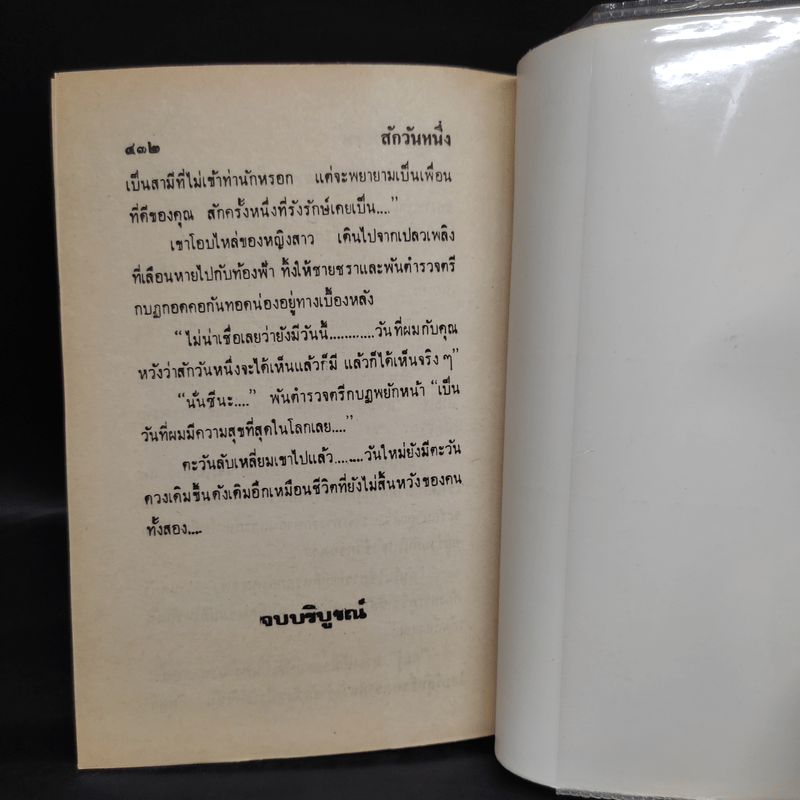 ๔๓๒ สักวันหนึ่ง
เป็นสามีที่ไม่เข้าท่านักหรอก แต่จะพยายามเป็นเพื่อน
ที่ดีของคุณ สักครั้งหนึ่งที่รังรักษ์เคยเป็น....”
เขาโอบไหล่ของหญิงสาว เดินไปจากเปลวเพลิง
ที่เลือนหายไปกับท้องฟ้า ทิ้งให้ชายชราและพันตำรวจตรี
กบฏกอดคอกันทอดน่องอยู่ทางเบื้องหลัง
“ไม่น่าเชื่อเลยว่ายังมีวันนี้............วันที่ผมกับคุณ
หวังว่าสักวันหนึ่งจะได้เห็นแล้วก็มี แล้วก็ได้เห็นจริง ๆ”
“นั่นซีนะ....” พันตำรวจตรีกบฏพยักหน้า “เป็น
วันที่ผมมีความสุขที่สุดในโลกเลย....”
ตะวันลับเหลี่ยมเขาไปแล้ว........วันใหม่ยังมีตะวัน
ดวงเดิมขึ้นดังเดิมอีกเหมือนชีวิตที่ยังไม่สิ้นหวังของคน
ทั้งสอง....
จบบริบูรณ์